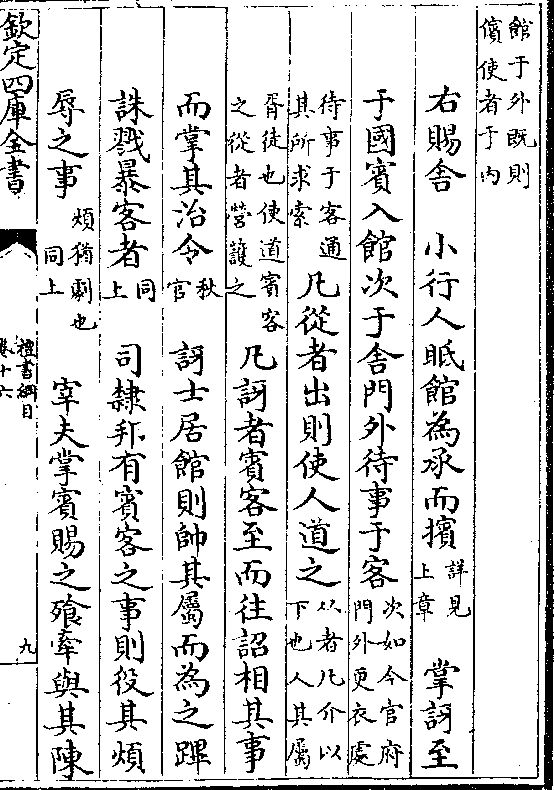 館于外既則
儐使者于内
右賜舎　小行人眡館為承而擯詳見上章　掌訝至
于國賓入館次于舍門外待事于客次如今官府門外更衣處
待事于客通其所求索　凡從者出則使人道之从者凡介以下也人其屬
胥徒也使道賓客之從者營䕶之　凡訝者賓客至而往詔相其事
而掌其治令秋官　訝士居館則帥其屬而為之蹕
誅戮暴客者同上　司隸邦有賓客之事則役其煩
辱之事煩猶劇也同上　宰夫掌賓賜之飱牽與其陳
欽定四庫全書
禮書綱目
卷十六
九